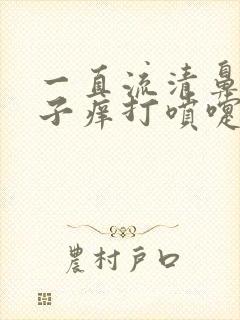 一直流清鼻
子痒打喷嚏
農村戸口